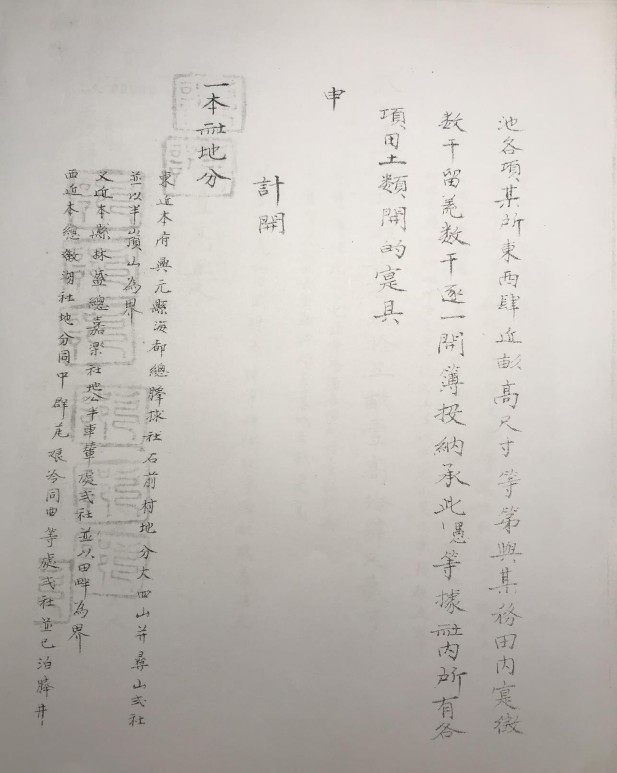 池各項某所東西肆近畝高尺寸等第與某務田内寔徵
数干留荒数干逐一開簿投納承此愚等據社内所有各
項田土類開的寔具
申
計開
一本社地分
東近本府興元縣海都總 社石前村地分大四山并尋山弍社
並以半頂山為界
又近本縣林盛總嘉梁社地分半車輦處弍社並以田畔為界
西近本總 社地分同中群尾 冷同曲等處弍社並已泊 井